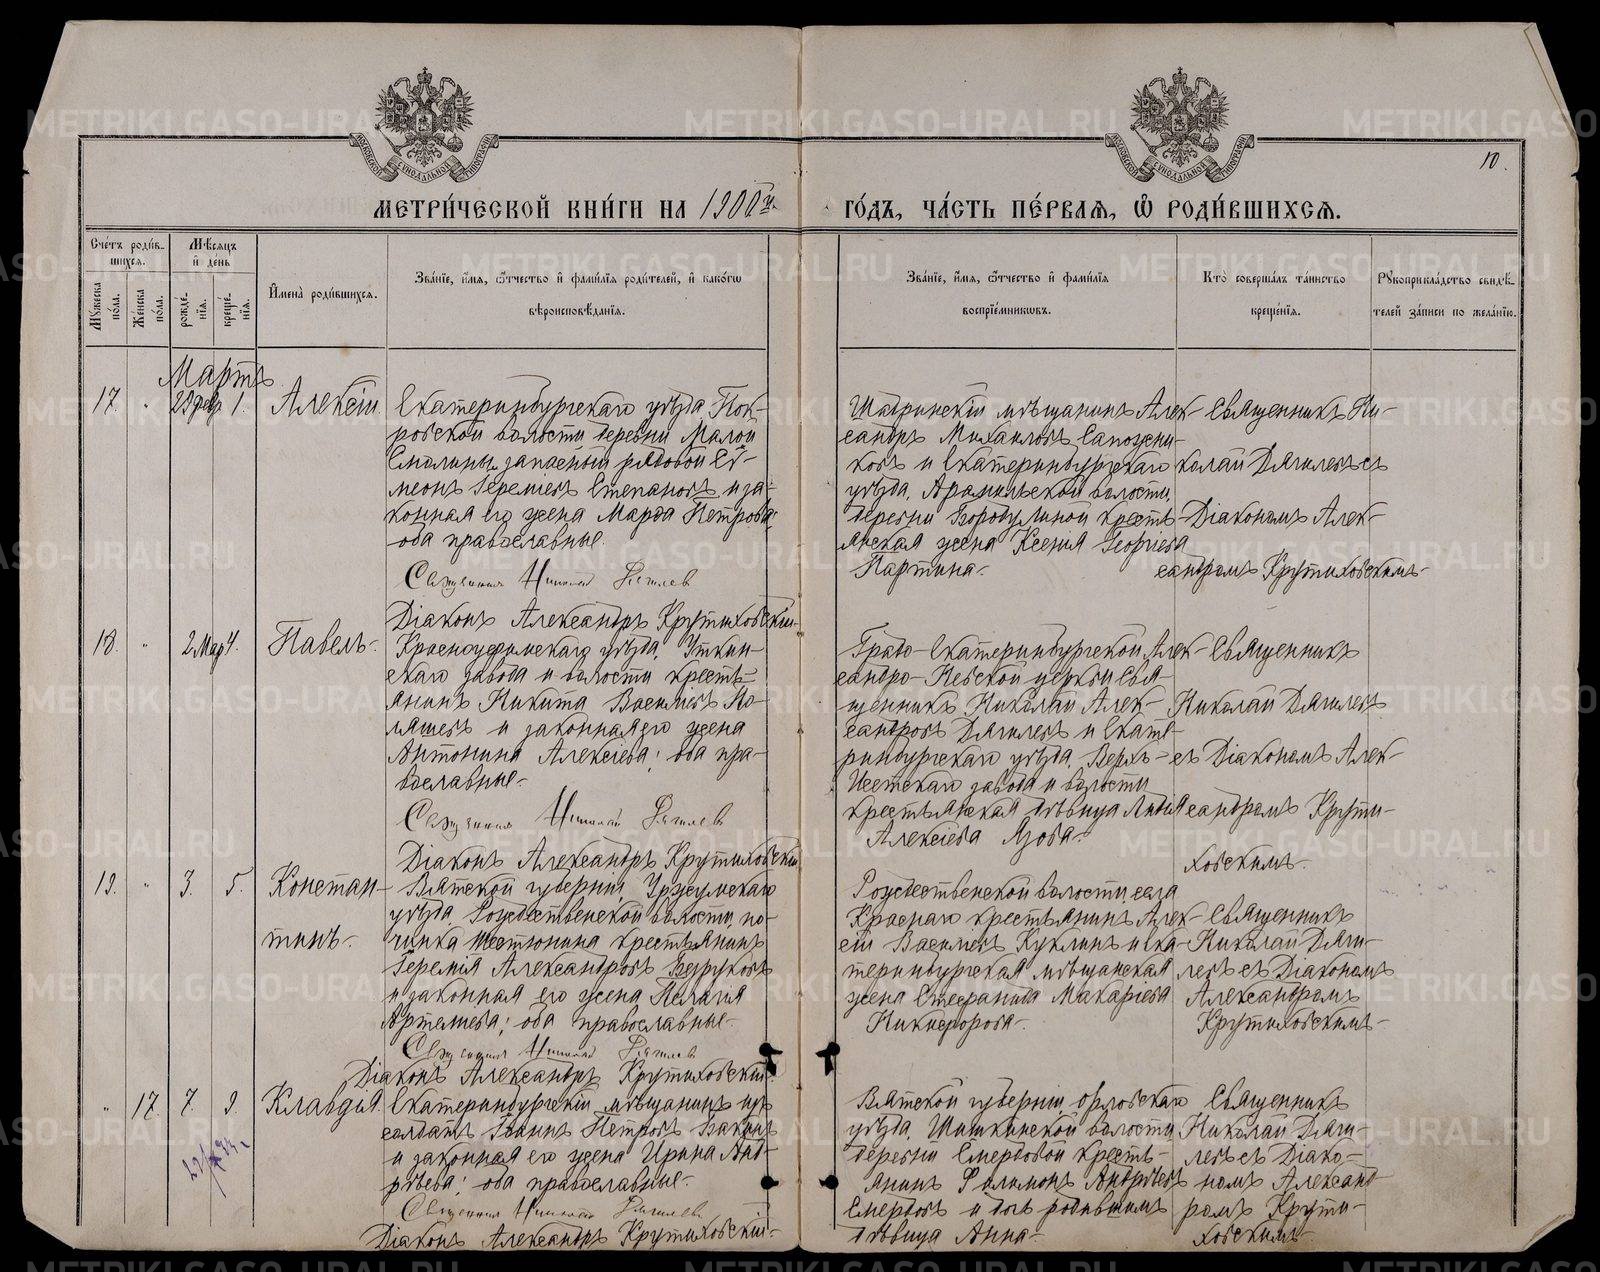 МЕТРИ́ЧЕСКОЙ КНИ́ГИ НА 1900й
ГО́ДЪ, ЧА́СТЬ ПЕ́РВАЯ, Ѡ РОДИ́ВШИХСЯ.
10.
Сче́тъ роди́в-
шихся.
Мѣ́сяцъ
и де́нь
Му́жеска по́ла.
Же́нска по́ла.
рожде́-
нія.
креще́-
нія.
Имена̀ роди́вшихся.
Зва́ніе, и́мя, ѻ́тчество и фами́лія роди́телей, и како́гѡ
вѣроисповѣ́данія.
Зва́ніе, и́мя, ѻ́тчество и фами́лія
воспріе́мникѡвъ.
Кто̀ соверша́лъ та́инство
креще́нія.
Рꙋкоприкла́дство свидѣ́-
телей за́писи по жела́нію.
Мартъ
17. " 29 фев 1. Алексій.
Екатеринбургскаго уѣзда, Пок-
ровской волости деревни Малой
Смолины, запасный рядовой Си-
меонъ Іереміевъ Степановъ и за-
конная его жена Марѳа Петрова,
оба православные.
Священникъ Николай Дягилевъ
Діаконъ Александръ Крутиховскій.
Шадринскій мѣщанинъ Алек-
сандръ Михаиловъ Сапожни-
ковъ и Екатеринбургскаго
уѣзда, Арамильской волости,
деревни Бородулиной кресть-
янская жена Ксенія Георгіева
Партина.
Священникъ Ни-
колай Дягилевъ съ
Діакономъ Алек-
сандромъ Крутиховскимъ.
18. " 2 Мар 4. Павелъ.
Красноуфимскаго уѣзда, Уткин-
скаго завода и волости кресть-
янинъ Никита Васильевъ По-
ляшевъ и законная его жена
Антонина Алексіева; оба пра-
вославные.
Священникъ Николай Дягилевъ
Діаконъ Александръ Крутиховскій
Градо-Екатеринбургской Алек-
сандро-Невской церкви свя-
щенникъ Николай Алек-
сандровъ Дягилевъ и Екате-
ринбургскаго уѣзда, Верхъ-
Исетскаго завода и волости
крестьянская дѣвица Лидія
Алексіева Язова.
Священникъ
Николай Дягилевъ
съ Діакономъ Алек-
сандромъ Крути-
ховскимъ.
19. " 3. 5. Констан-
тинъ.
Вятской губерніи, Уржумскаго
уѣзда, Рождественской волости, по-
чинка крестьянинъ
Іеремія Александровъ Безруковъ
и законная его жена Пелагія
Артеміева; оба православные.
Священникъ Николай Дягилевъ
Діаконъ Александръ Крутиховскій.
Рождественской волости, села
Краснаго крестьянинъ Алек-
сій Васильевъ Куклинъ и Ека-
теринбургская мѣщанская
жена Стефанида Макаріева
Никифорова.
Священникъ
Николай Дяги-
левъ съ Діакономъ
Александромъ
Крутиховскимъ.
" 17. 7. 9. Клавдія.
Екатеринбургскій мѣщанинъ изъ
солдатъ Іоаннъ Петровъ
и законная его жена Ирина Анд-
реева; оба православные.
Священникъ Николай Дягилевъ
Діаконъ Александръ Крутиховскій.
Вятской губерніи, Орловскаго
уѣзда, волости
деревни Смердовой кресть-
янинъ Филимонъ Андреевъ
Смердовъ и дочь родившимъ
дѣвица Анна.
Священникъ
Николай Дяги-
левъ съ Діако-
номъ Александ-
ромъ Крути-
ховскимъ